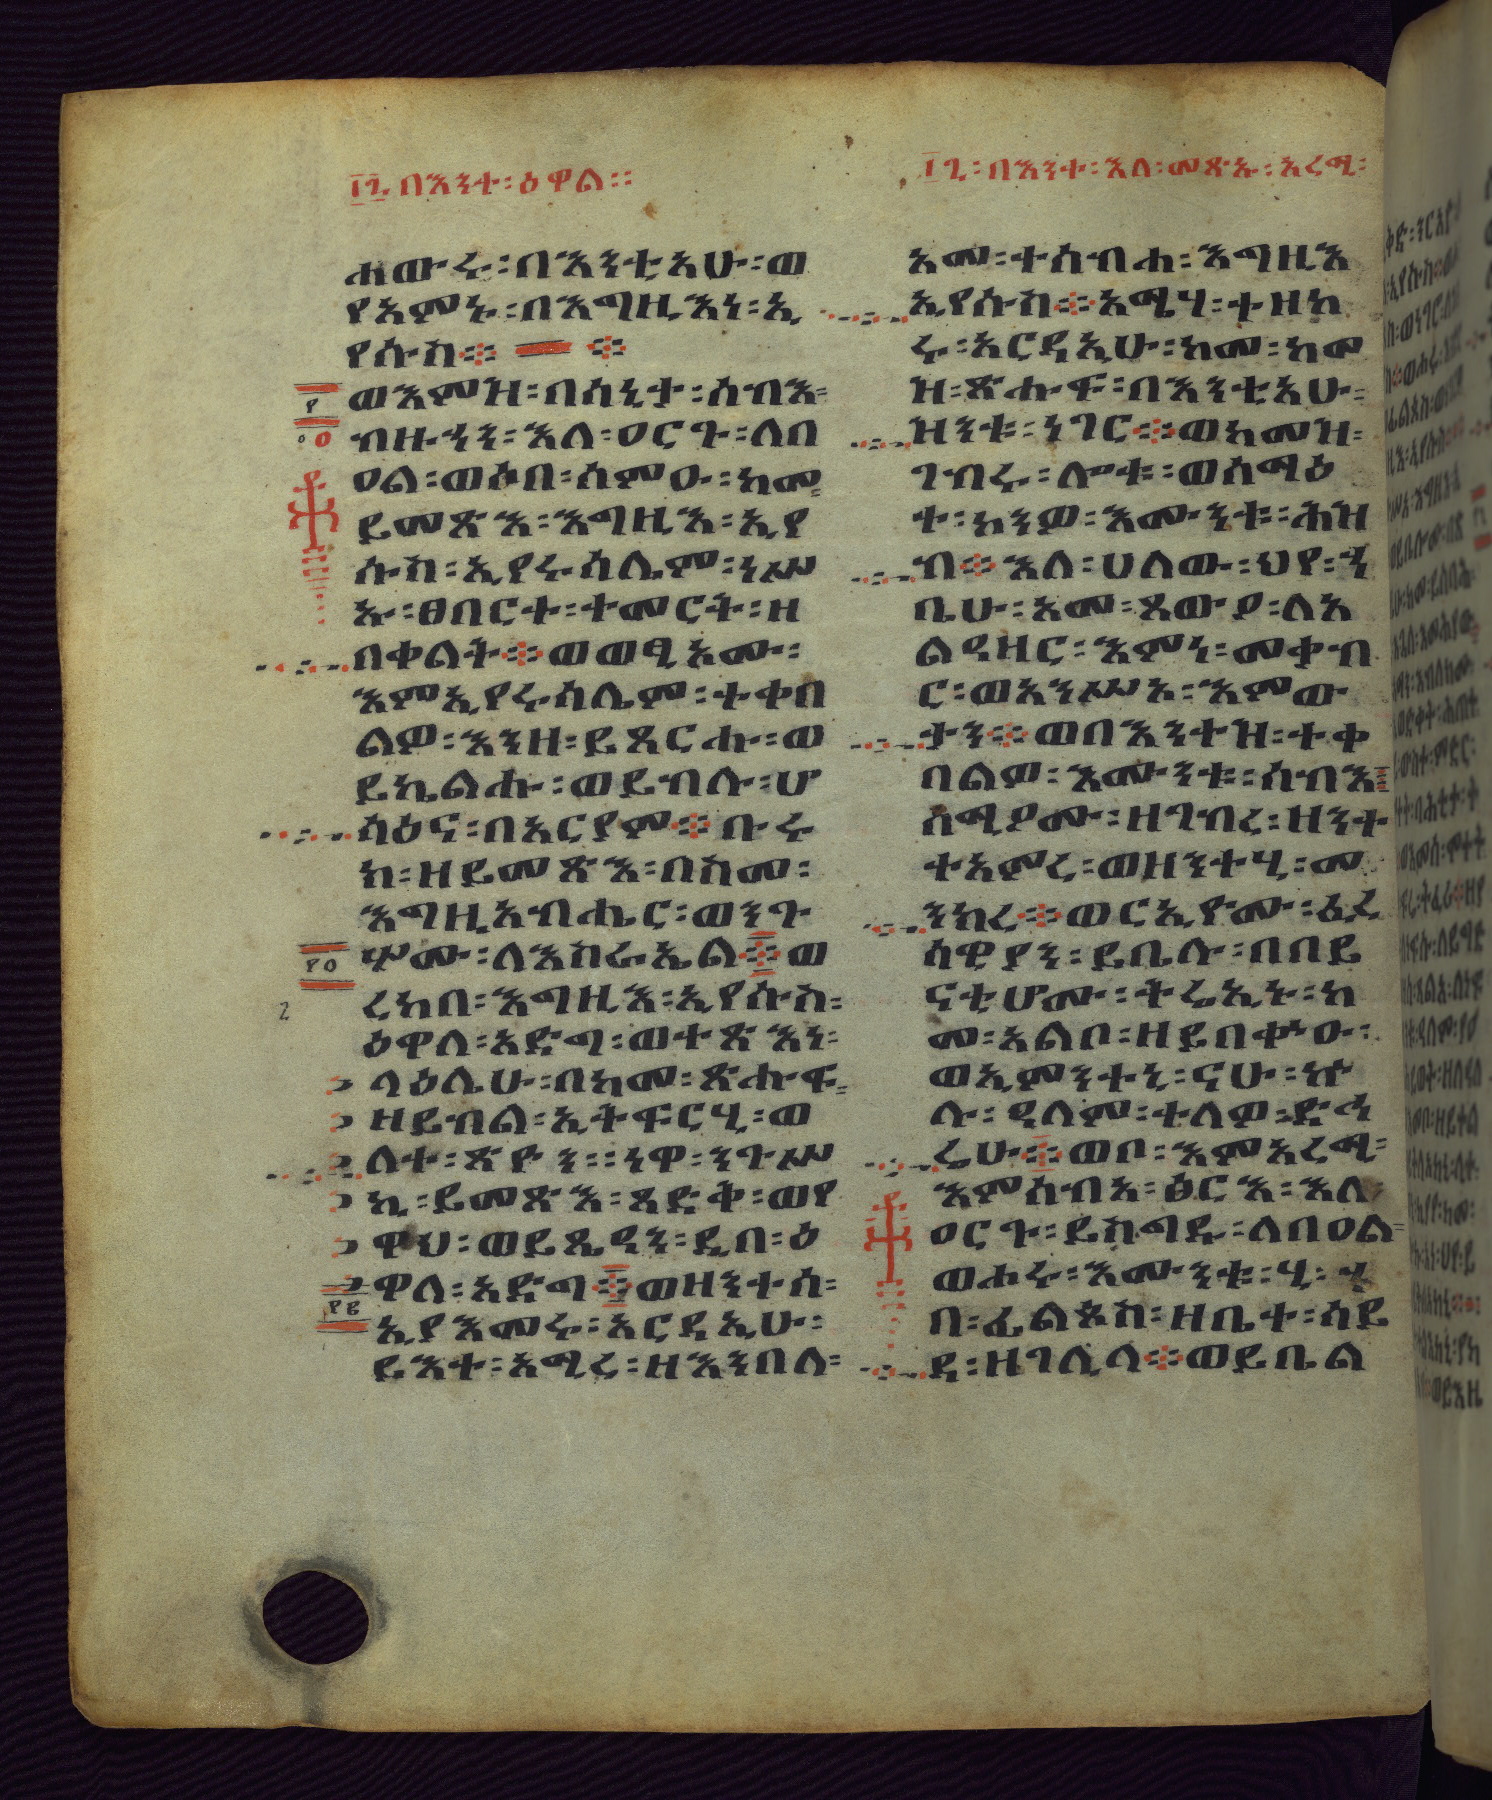 ፲፪ በእንተ፡ዕዋል፡፡
ሐውሩ፡በእንቲአሁ፡ወ
የአምኑ፡በእግዚእነ፡ኢ
የሱስ፨ ፨
ወእምዝ፡በሳኒታ፡ሰብእ፡
ብዙኅን፡እለ፡ዐርጉ፡ለበ
ዐል፡ወሶበ፡ሰምዑ፡ከመ፡
ይመጽእ፡እግዚእ፡ኢየ
ሱስ፡ኢየሩሳሌም፡ነሥ
ኡ፡ፀበርተ፡ተመርት፡ዘ
በቀልት፨ወወፂአሙ፡
እምኢየሩሳሌም፡ተቀበ
ልዎ፡እንዘ፡ይጸርሑ፡ወ
ይኬልሑ፡ወይብሉ፡ሆ
ሳዕና፡በአርያም፨ቡሩ
ክ፡ዘይመጽእ፡በስመ፡
እግዚአብሔር፡ወንጉ
ሦሙ፡ለእስራኤል፨ወ
ረከበ፡እግዚእ፡ኢየሱስ፡
ዕዋለ፡አድግ፡ወተጽእነ፡
ላዕሌሁ፡በከመ፡ጽሑፍ፡
ዘይብል፡ኢትፍርሂ፡ወ
ለተ፡ጽዮን፡፡ነዋ፡ንጉሥ
ኪ፡ይመጽእ፡ጻድቅ፡ወየ
ዋህ፡ወይጼዓን፡ዲበ፡ዕ
ዋለ፡አድግ፨ወዘንተሰ፡
ኢያእመሩ፡አርዳኢሁ፡
ይእተ፡አሚረ፡ዘእንበለ፡
፲፫፡በእንተ፡እለ፡መጽኡ፡አረሚ፡
አመ፡ተሰብሐ፡እግዚእ
ኢየሱስ፨አሜሃ፡ተዘከ
ሩ፡አርዳኢሁ፡ከመ፡ከመ
ዝ፡ጽሑፍ፡በእንቲአሁ፡
ዝንቱ፡ነገር፨ወከመዝ፡
ገብሩ፡ሎቱ፡ወሰማዕ
ተ፡ኮንዎ፡እሙንቱ፡ሕዝ
ብ፨እለ፡ሀለው፡ህየ፡ኀ
ቤሁ፡አመ፡ጸውዖ፡ለአ
ልዓዛር፡እምነ፡መቃብ
ር፡ወአንሥአ፡እምው
ታን፨ወበእንተዝ፡ተቀ
በልዎ፡እሙንቱ፡ሰብእ፡
ሰሚዖሙ፡ዘገብረ፡ዘንተ
ተአምረ፡ወዘንተሂ፡መ
ንክረ፨ወርእዮሙ፡ፈሪ
ሳዊያን፡ይቤሉ፡በበይ
ናቲሆሙ፡ትሬእኑ፡ከ
መ፡አልቦ፡ዘይበቍዑ፡
ወኢምንተኒ፡ናሁ፡ኵ
ሉ፡ዓለም፡ተለዎ፡ድኅ
ሬሁ፨ወቦ፡እምአረሚ፡
እምሰብአ፡ፅርእ፡እለ፡
ዐርጉ፡ይስግዱ፡ለበዐል፡
ወሖሩ፡እሙንቱ፡ሂ፡ኀ
በ፡ፊልጶስ፡ዘቤተ፡ሳይ
ዳ፡ዘገሊላ፨ወይቤል